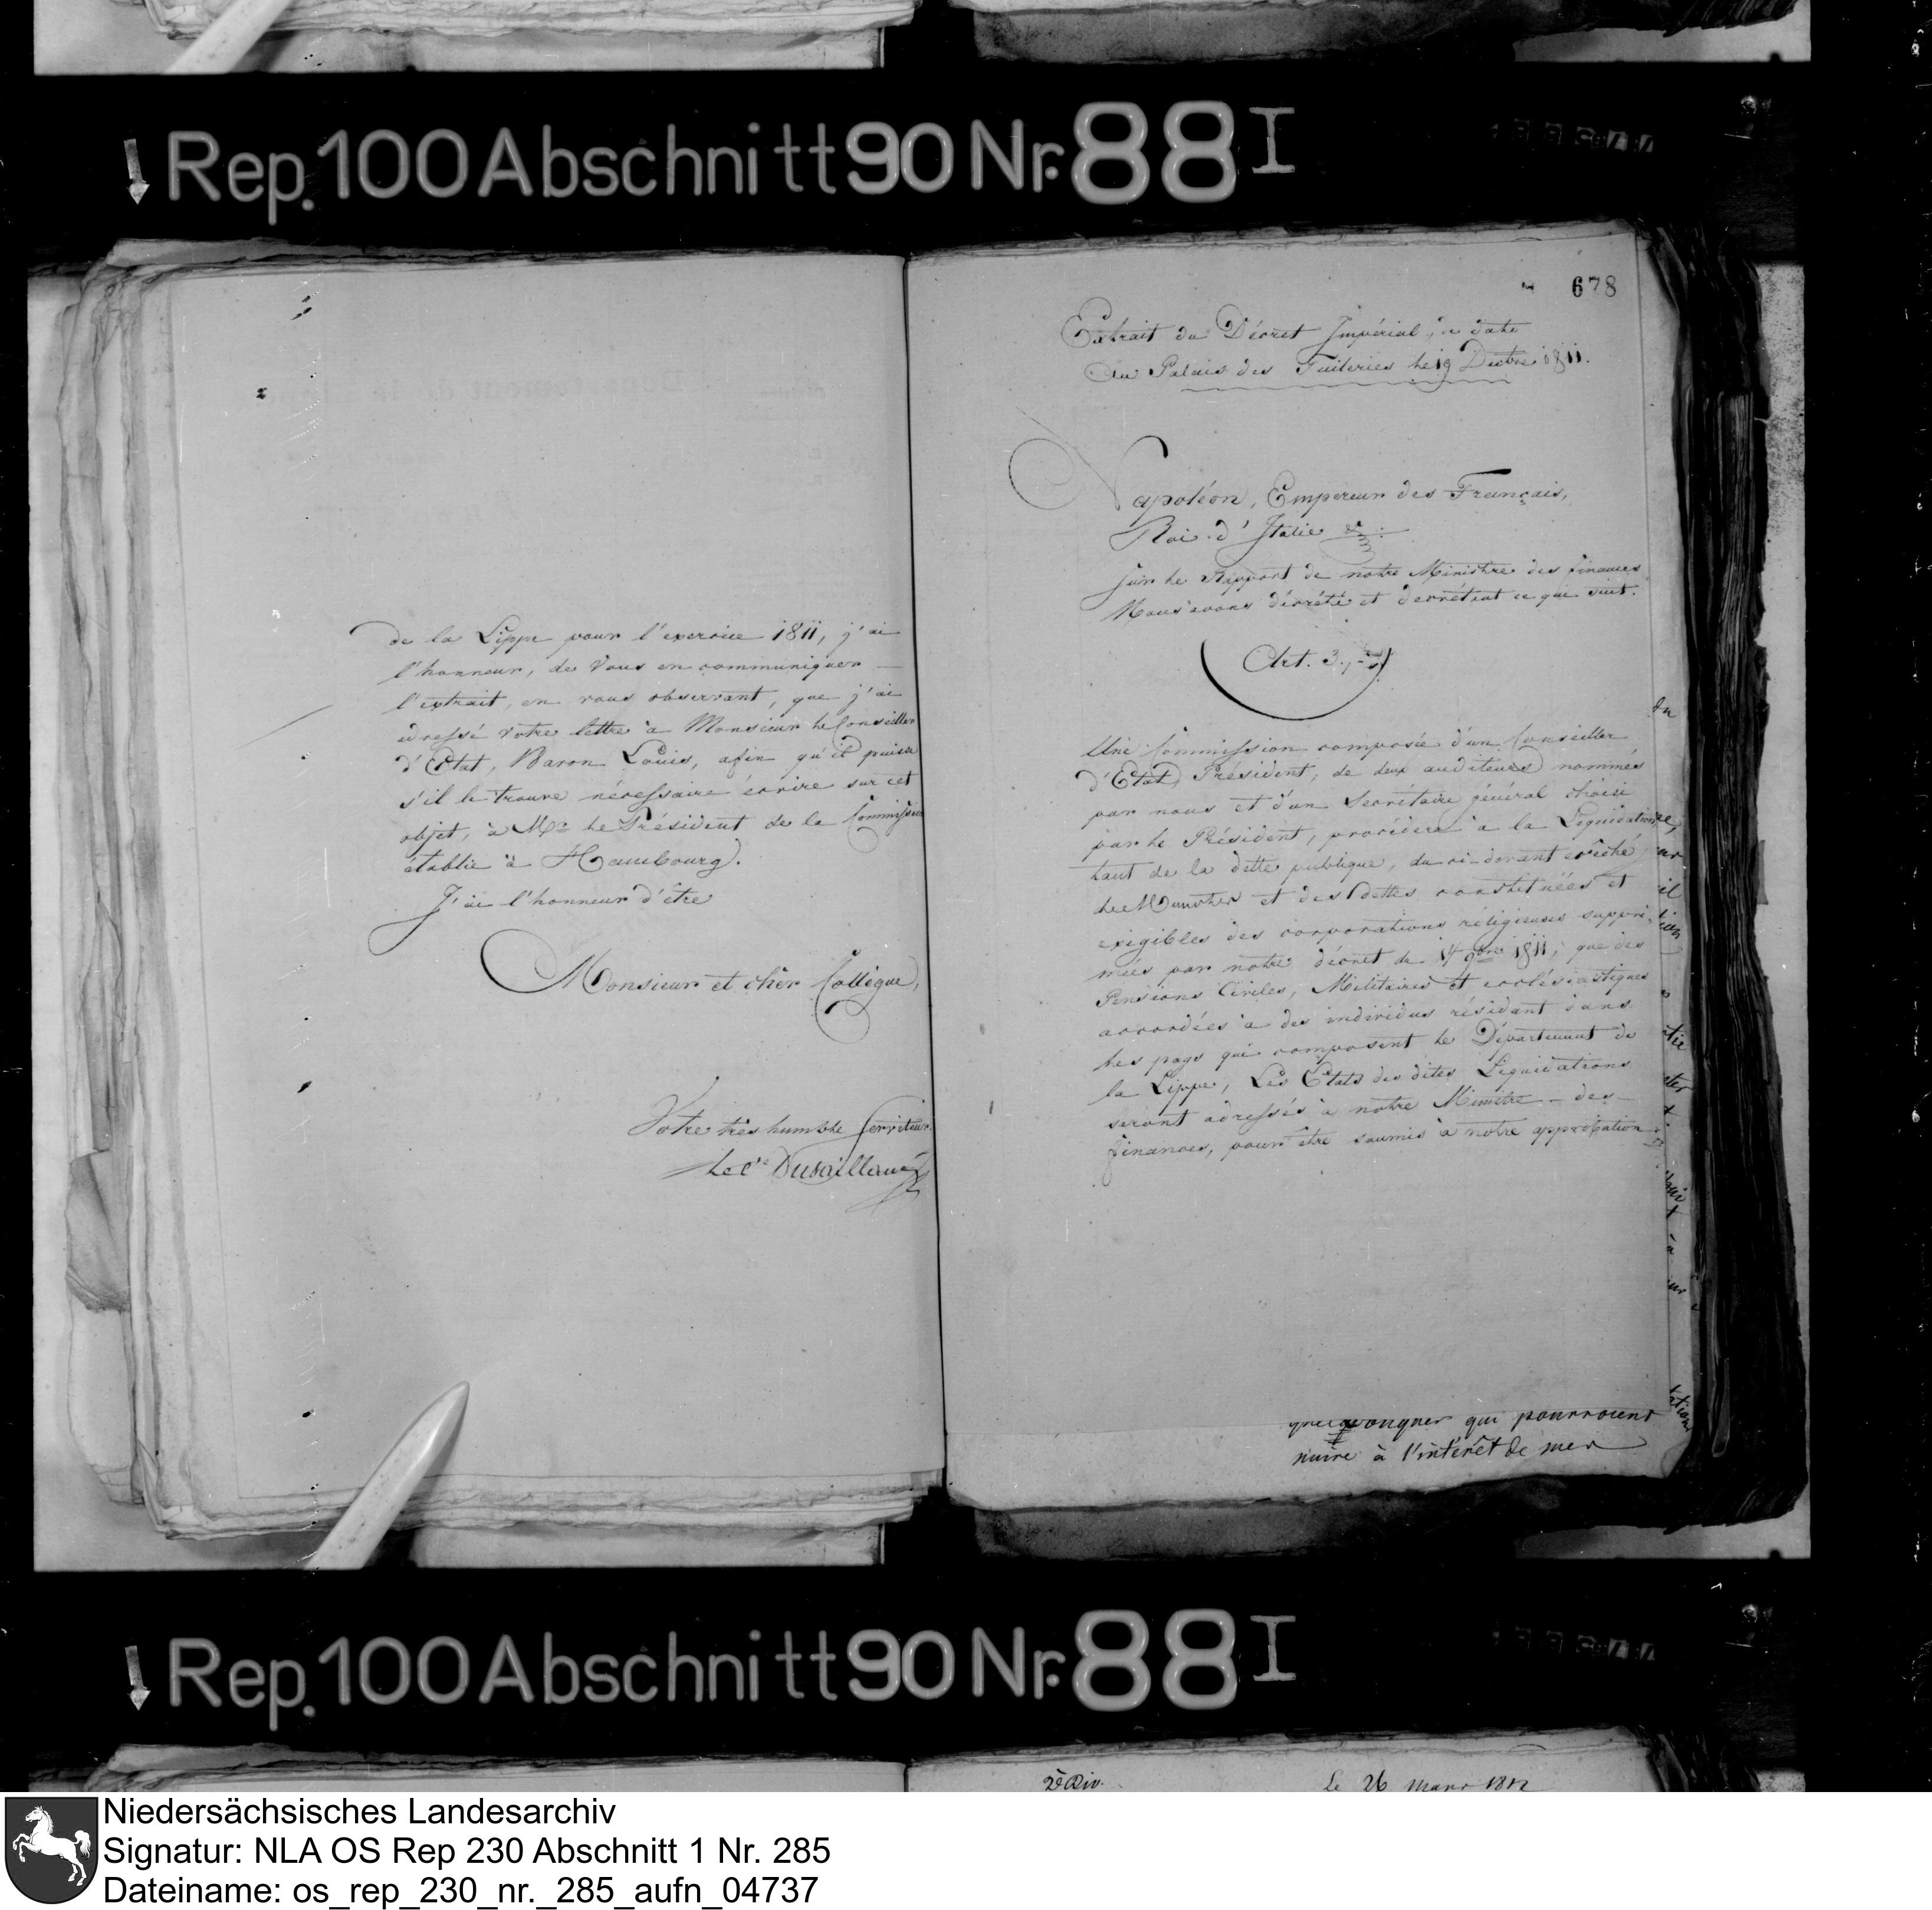 Rep. 100 Abschnitt 90 Nr. 88 I
de la Lippe pour l'exercice 1811, j'ai
l'honneur, de Vous en communiquer
l'extrait, en vous observant, que j'ai
adressé votre lettre à Monsieur le Conseiller
d'Etat, Baron Louis, afin qu'il puisse
s'il le trouve nécessaire écrire sur cet
objet, à Mr. le Président de la Commission
établie à Hambourg.
J'ai l'honneur d'être
Monsieur et cher Collègue,
Votre très humble Serviteur
678
Extrait du Décret Impérial, en date
du Palais des Tuileries le 19 Decbre 1811.
Napoléon, Empereur des Français,
Roi d'Italie &
Sur le Rapport de notre Ministre des finances
Nous avons décrété et decrétont ce que suit.
Art. 3.
Une Commission composée d'un Conseiller
d'Etat, Président, de deux auditeurs nommés
par nous et d'un Secrétaire général choisi
par le Président, procédera à la Liquidation
tant de la dette publique, du ci-devant evêché
de Munster et des dettes constituées et
exigibles des corporations réligieuses suppri-
mées par notre décret du 14 9bre 1811, que des
Pensions Civiles, Militaires et ecclésiastiques
accordées à des individus résidant dans
les pays qui composent le Département de
la Lippe, Les Etats des dites Liquidations
seront adressés à notre Ministre des
finances, pour être soumis à notre approbation
qui pourroient
nuire à l'intérêt de mes
Rep. 100 Abschnitt 90 Nr. 88 I
2e Div. Le 26 mars 1812
Niedersächsisches Landesarchiv
Signatur: NLA OS Rep 230 Abschnitt 1 Nr. 285
Dateiname: os_rep_230_nr._285_aufn_04737